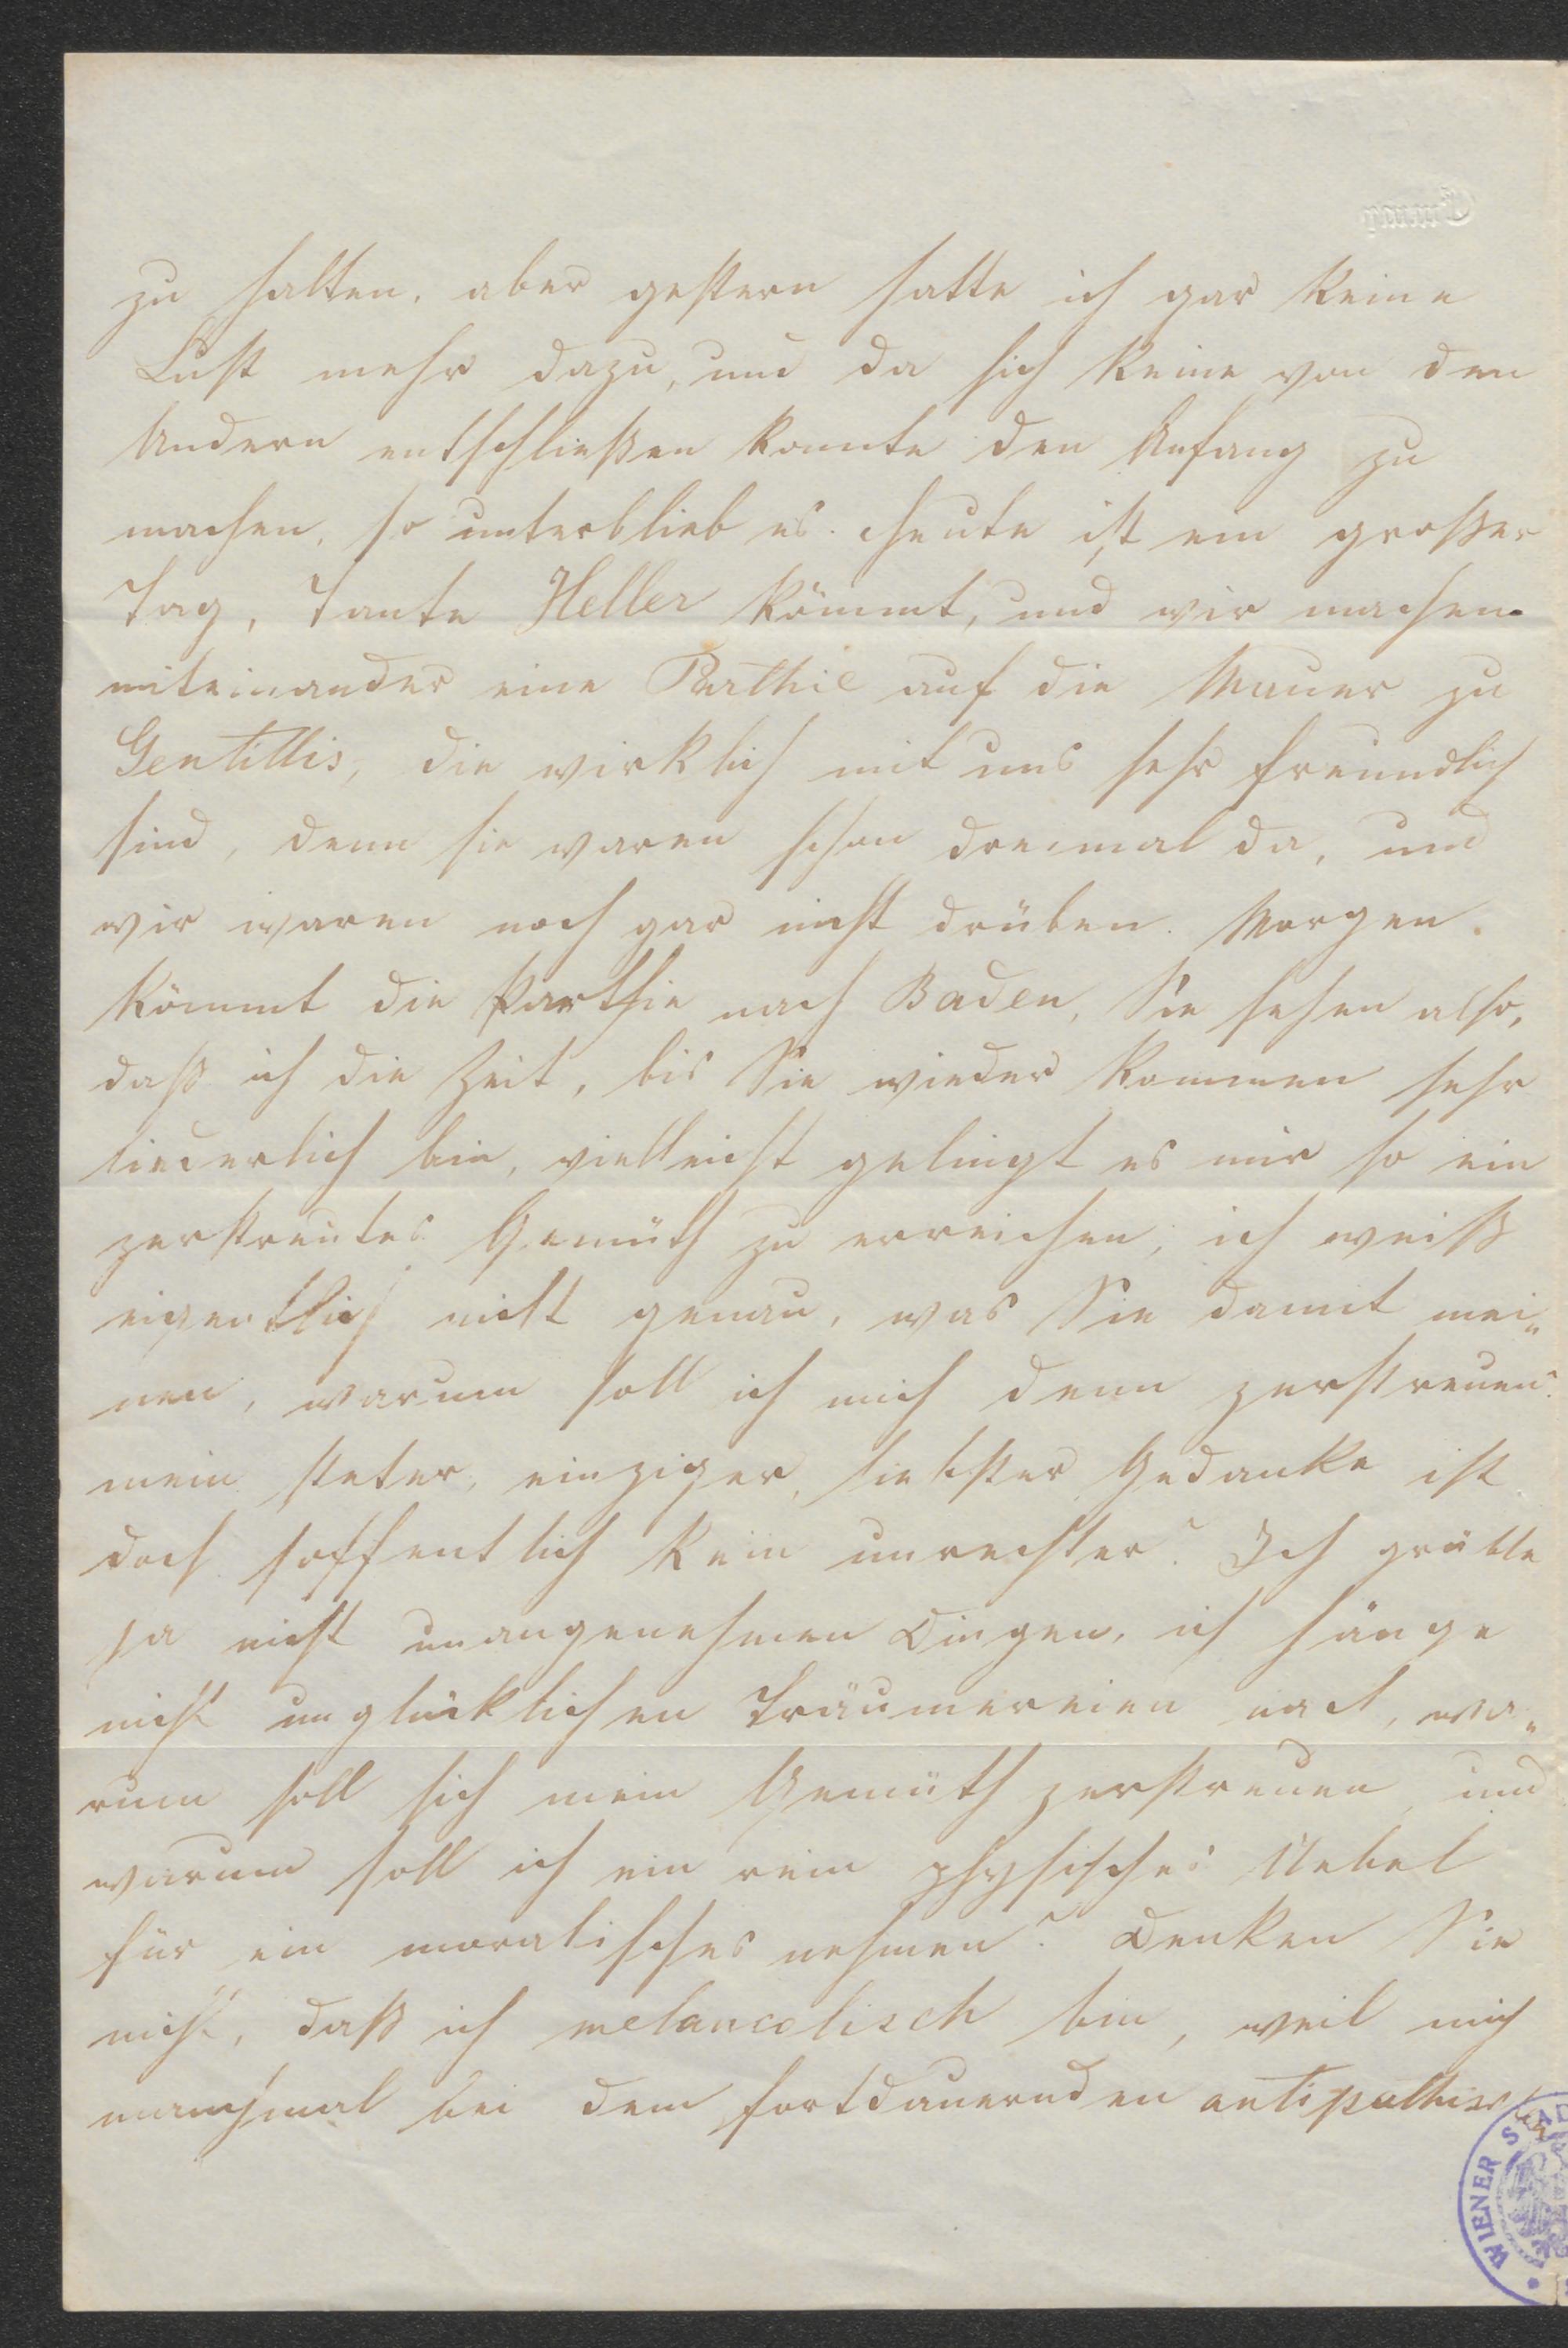 zu halten, aber gestern hatte ich gar keine
Lust mehr dazu, und da sich keine von den
Andern entschließen konnte den Anfang zu
machen, so unterblieb es. Heute ist ein großer
Tag, Tante Heller kömmt, und wir machen
miteinander eine Parthie auf die Mauer zu
Gentillis, die wirklich mit uns sehr freundlich
sind, denn sie waren schon dreimal da, und
wir waren noch gar nicht drüben. Morgen
kömmt die Parthie nach Baden, Sie sehen also,
daß ich die Zeit, bis Sie wieder kommen sehr
liederlich bin, vielleicht gelingt es mir so ein
zerstreutes Gemüth zu erreichen, ich weiß
eigentlich nicht genau, was Sie damit mei„
nen, warum soll ich mich denn zerstreuen?
mein steter, einziger, liebster Gedanke ist
doch hoffentlich kein unrechter? Ich grüble
ja nicht unangenehmen Dingen, ich hänge
nicht unglücklichen Träumereien nach, wa„
rum soll sich mein Gemüth zerstreuen, und
warum soll ich ein rein physisches Uebel
für ein moralisches nehmen? Denken Sie
nicht, daß ich melancolisch bin, weil mich
manchmal bei dem fortdauernden antipathisch
WIENER STAD